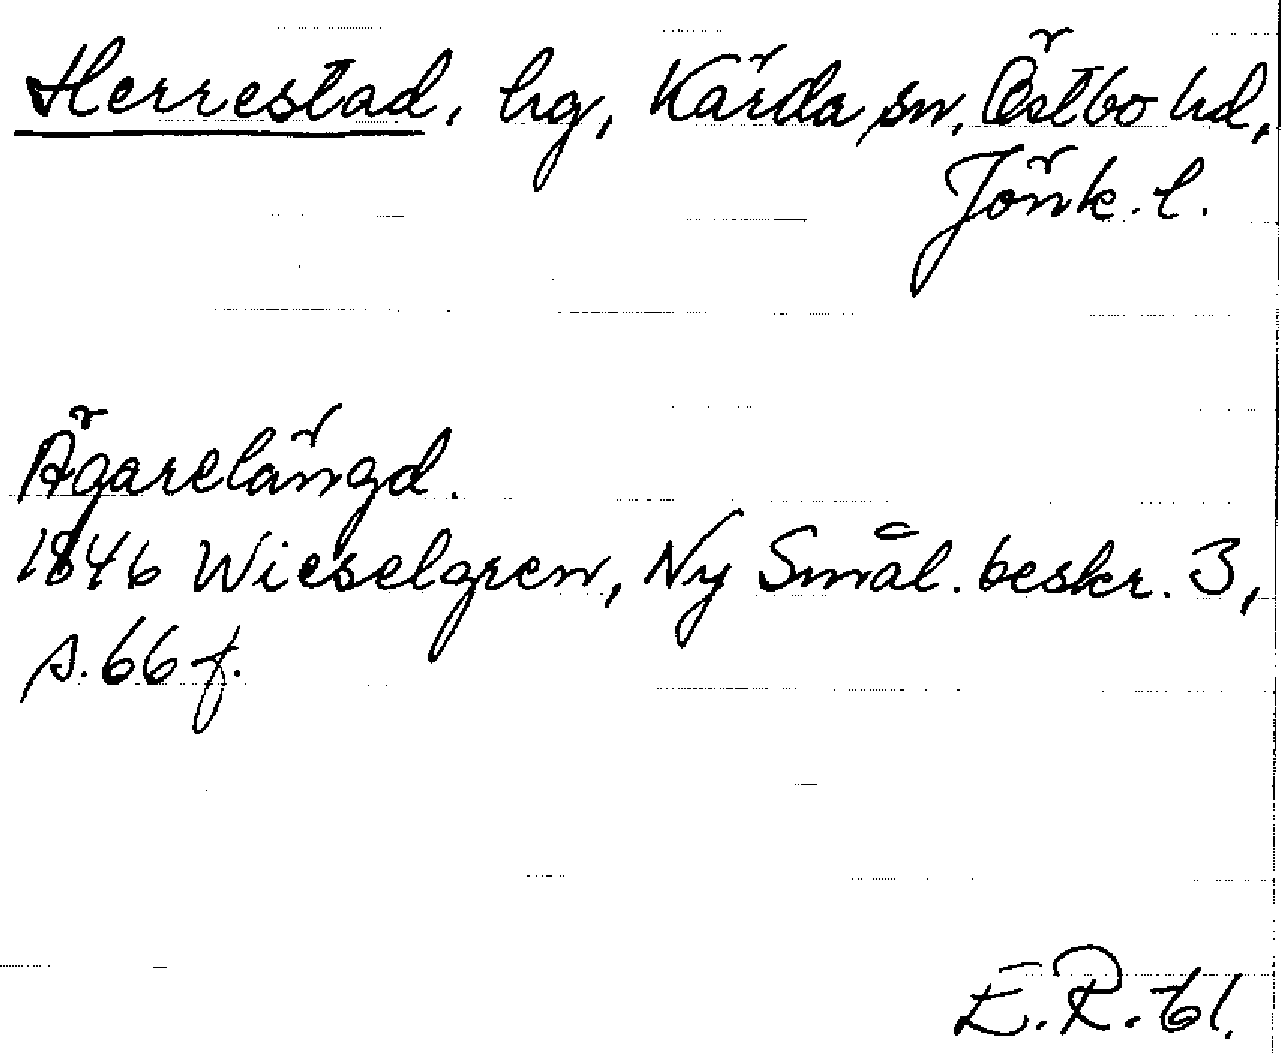 Herrestad, hg, Kärda sn, Östbo hd,
Jönk. l.
Ägarelängd.
1846 Wieselgren, Ny Smål. beskr. 3,
s. 66 f.
E. R. 61.